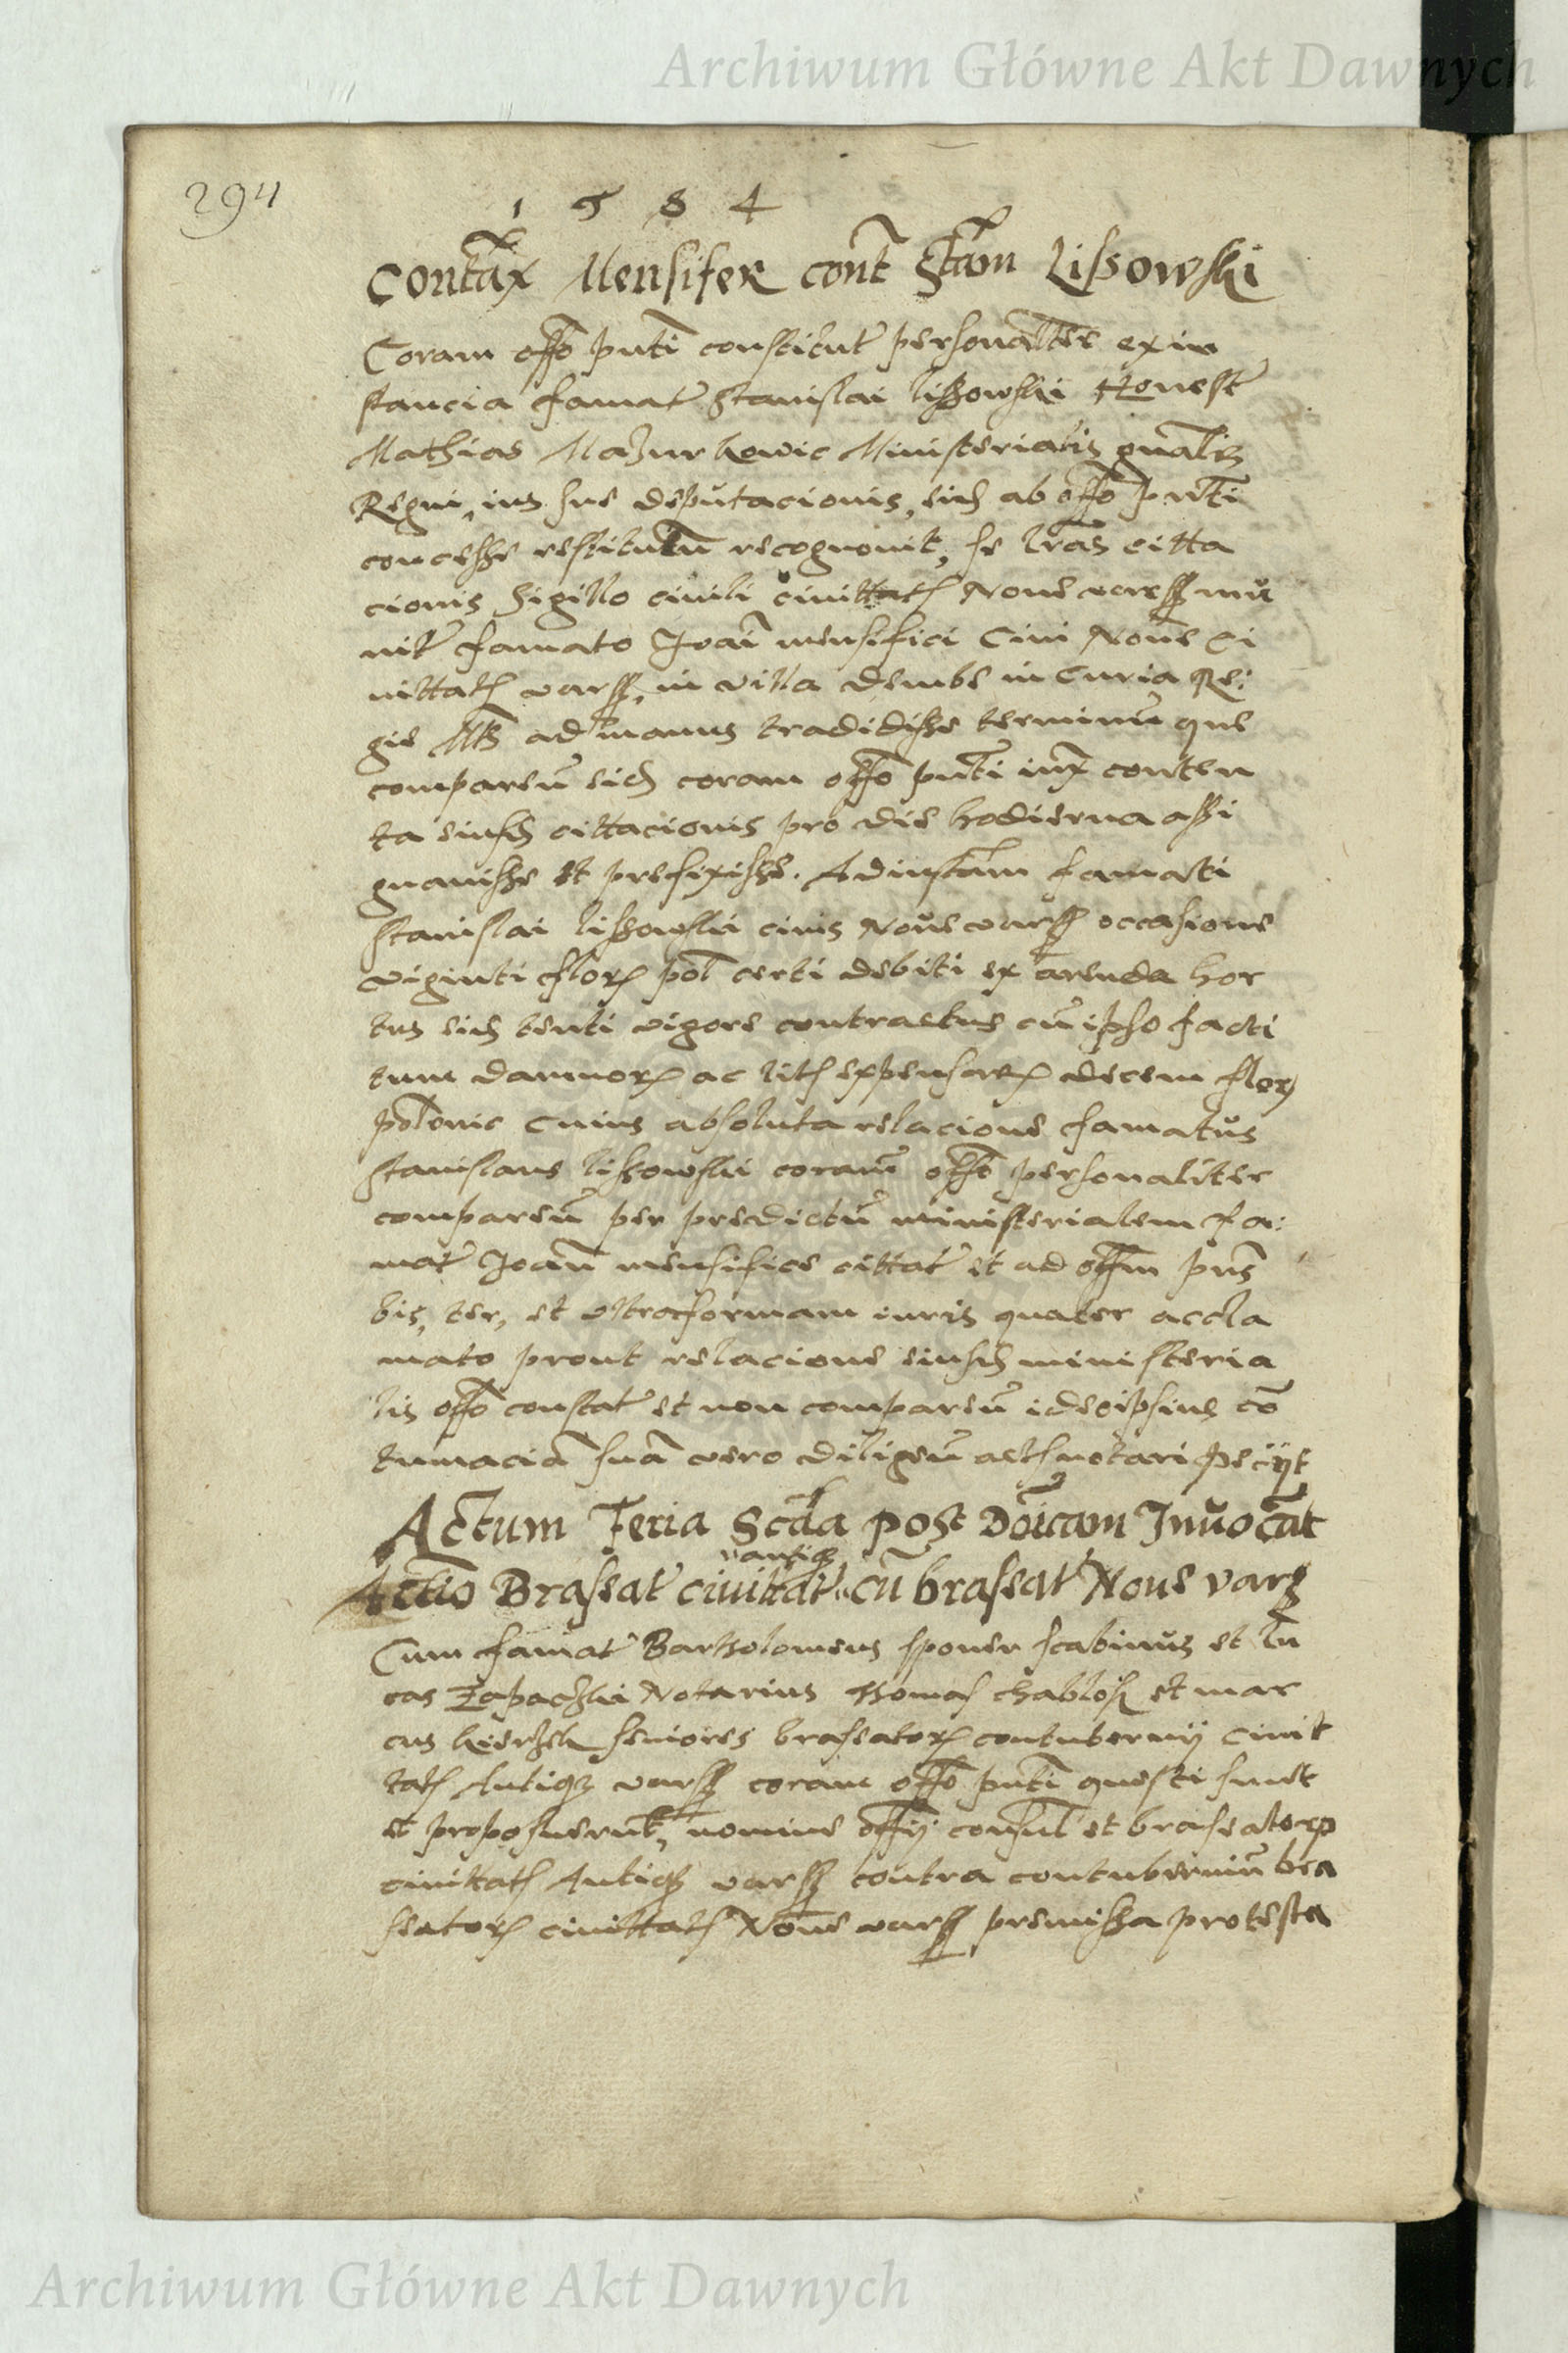 Archiwum Główne Akt Dawnych
294
1 5 8 4
Contax Mensifex cont Stam Lissowski
Coram offo pnti constitut personalter ex in
stancia famat Stanislai Lissowski Honest
Mathias Mazurkowic Ministerialis gnalis
Regni, ius sue deputacionis, eid ab offo pnti
concesse restitutu recognovit, se lras citta
cionis sigillo civili civittatis Nove vars mu
nit famato Joai mensifici Civi Nove Ci
vittatis vars, in villa Dembe in Curia Re:
gie Mtis ad manus tradidisse terminu que
comparen eid coram offo pnti iux conten
ta eiusd cittacionis pro die hodierna assi
gnavisse et prefixisse. Ad instam famati
Stanislai Lissowski civis Nove vars occasione
viginti flor pol certi debiti ex arenda hor
tus eid tenti vigore contractus cu ipso facti
tum damnor ac litis expensar decem flor
polonic Cuius absoluta relacione famatus
Stanislaus Lissowski coram offo personaliter
comparen per predictu ministerialem fa:
mat Joan mensifice cittat et ad offm pns
bis, ter, et ultra formam iuris quater accla
mato prout relacione eiusd ministeria
lis offo constat et non comparen ideo ipsius co
tumacia sua vero diligen actis notari peciit
Actum Feria Scda post Doicam Invocat
Actio Braseat civittat antiq cu braseat Nove vars
Cum famat Bartholomeus sponer scabinus et Lu
cas Zapaczki Notarius Thomas chablos et mar
cus kierzek seniores braseator contubernij Civit
tatis Antiq vars coram offo pnti questi sunt
et proposuerunt, nomine offij consul et braseator
civittatis Antiq vars contra contuberniu bra
seator civittatis Nove vars premissa protesta
Archiwum Główne Akt Dawnych